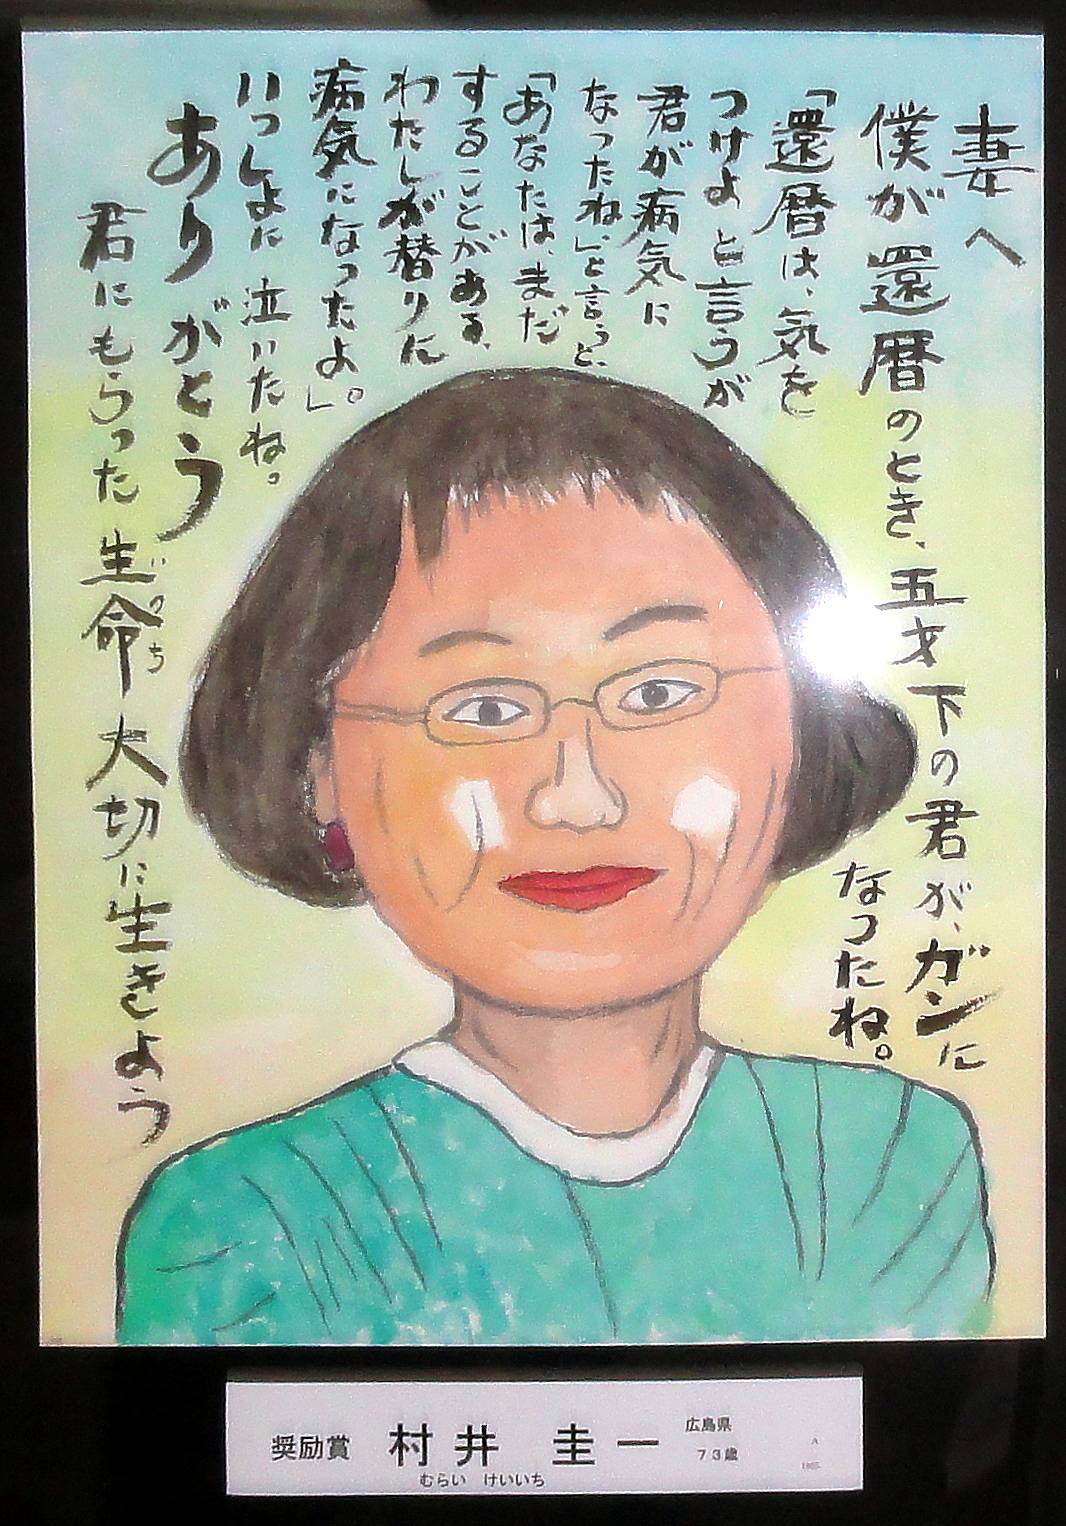 妻へ
僕が還暦のとき、五才下の君が、ガンに
なったね。
「還暦は、気を
つけよと言うが
君が病気に
なったね」、と言うと、
「あなたは、まだ
することがある、
わたしが替りに
病気になったよ。」
いっしょに泣いたね。
ありがとう
君にもらった生命大切に生きよう
いのち
奨励賞 村井 圭一 広島県
むらい けいいち
73歳
A